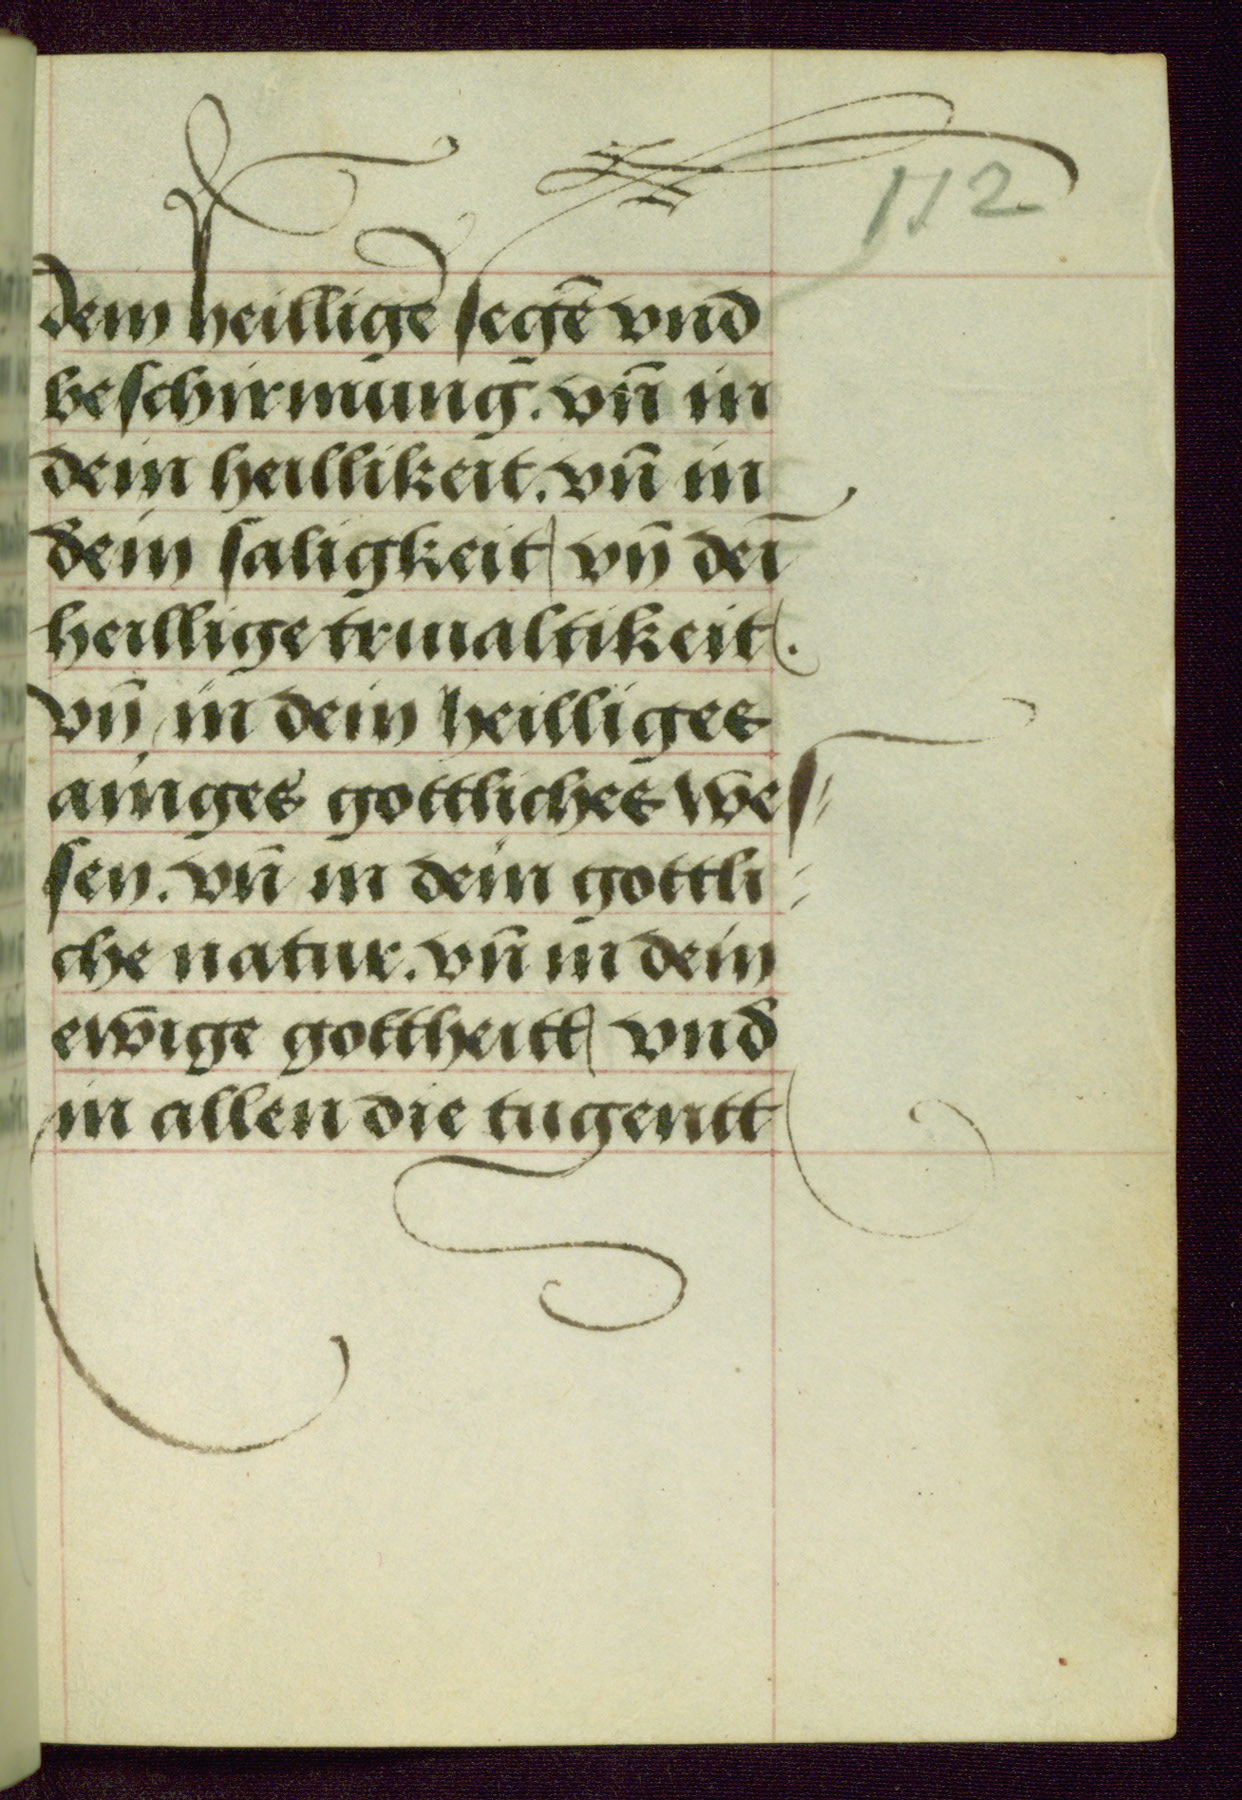 112
dein heillige᷎n segē vnd
beschirmung. vn̄ in
dein heillikeit. vn̄ in
dein saligkeit vn̄ dei᷎n
heillige triualtikeit.
vn̄ in dein heilliges
ainiges gottliches we
sen. vn̄ in dein gottli
che natur. vn̄ in dein
ewige gottheitt vnd
in allen die tugentt